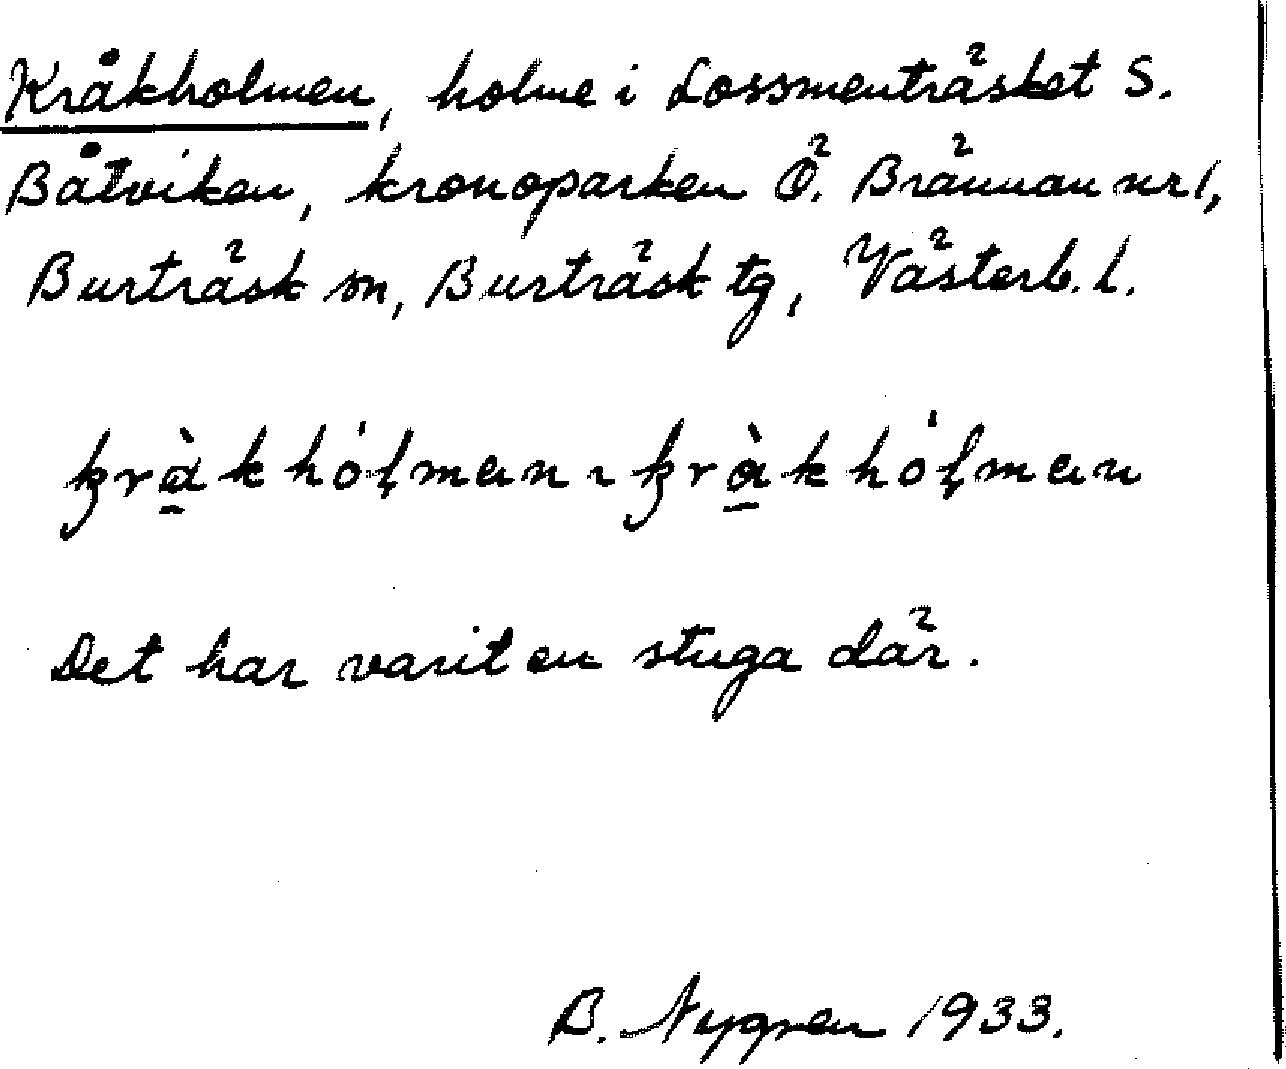 Kråkholmen, holme i Lossmenträsket S.
Båtviken, kronoparken Ö. Brännan nr 1,
Burträsk sn, Burträsk tg, Västerb. l.
kràk hólman ~ kràk hólman
Det har varit en stuga där.
B. Nygren 1933.